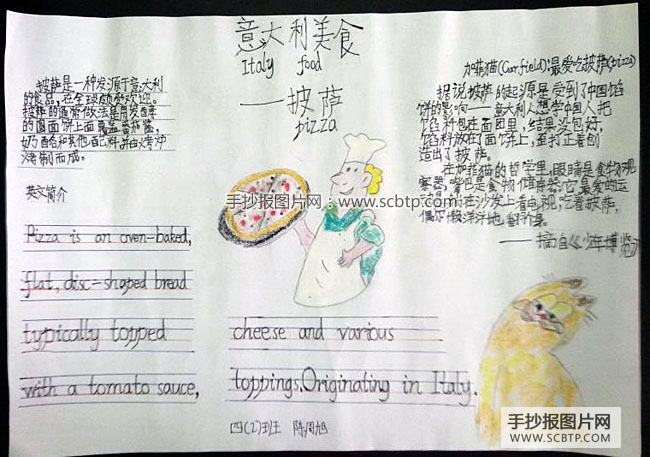 意大利美食
Italy food
——披萨
pizza
披萨是一种发源于意大利
的食品,在全球颇受欢迎。
披萨的通常做法是用发酵
的圆面饼上面覆盖番茄酱,
奶酪和其他配料,并由烤炉
烤制而成。
英文简介
Pizza is an oven-baked,
flat, disc-shaped bread
typically topped
with a tomato sauce,
cheese and various
toppings.Originating in Italy.
加菲猫(Garfield):最爱吃披萨(pizza)
据说披萨的起源是受到了中国馅
饼的影响——意大利人想学中国人把
馅料包在面团里,结果没包好,
馅料放在了面饼上,歪打正着创
造出了披萨。
在加菲猫的哲学里,眼睛是食物观
察器,嘴巴是食物储存器,它最爱的运
动是:在沙发上看电视,吃着披萨,
偶尔懒洋洋地翻个身。
——摘自《少年博览》
四(2)班 陈周旭
手抄报图片网:www.scbtp.com
手抄报图片网
WWW.SCBTP.COM